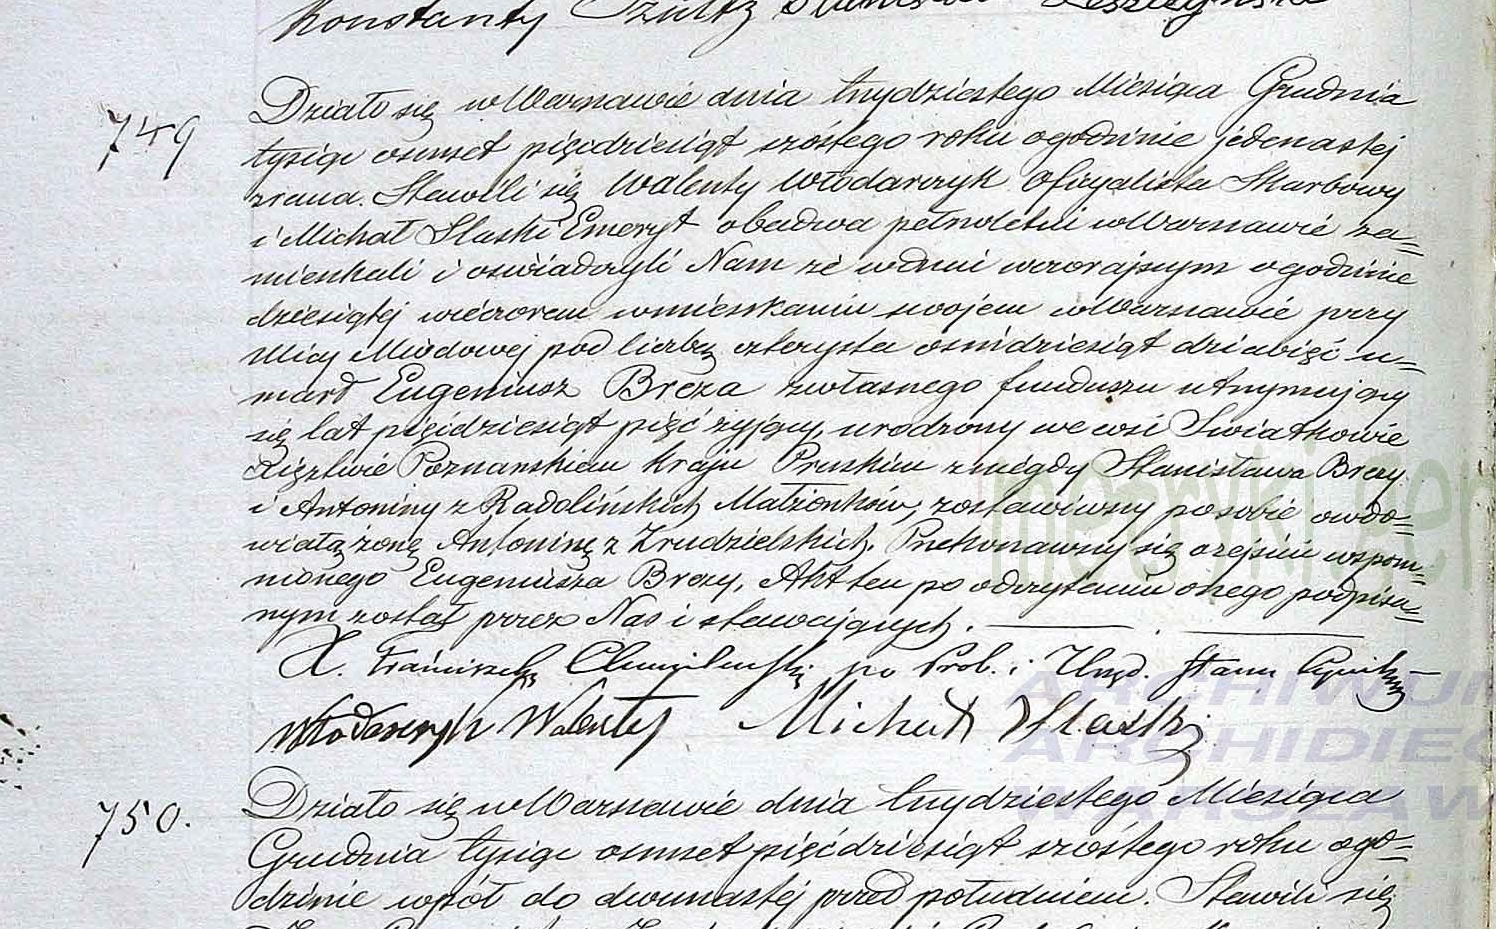 Konstanty Szultz
749
Działo się w Warszawie dnia trzydziestego Miesiąca Grudnia
tysiąc osmset pięcdziesiąt szóstego roku ogodzinie jedenastej
zrana. Stawili się Walenty Włodarczyk Oficyalista Skarbowy
i Michał Slaski Emeryt obadwa pełnoletni w Warszawie za=
mieszkali i oświadczyli Nam że wdniu wczorajszym ogodzinie
dziesiątej wieczorem wmieszkaniu swojem w Warszawie przy
Ulicy Miodowej pod liczbą czterysta ośmdziesiąt dziewięć u=
marł Eugeniusz Breza zwłasnego funduszu utrzymujący
się lat pięćdziesiąt pięć żyjący, urodzony we wsi Swiatkowie
Xięztwie Poznanskiem Kraju Pruskim zniegdy Stanisława Brezy
i Antoniny z Radolińskich Małżonków, zostawiwszy po sobie owdo=
wiałą żonę Antoninę z Trudzielskich. Przekonawszy się ozejściu wspom=
nionego Eugeniusza Brezy, Akt ten po odczytaniu onego podpisa=
nym został przez Nas i stawających.
X. Franciszek po Prob. i Urzęd. Stanu Cywilnego
Włodarczyk Walenty Michał Slaski
metryki.gen
ARCHIWUM
ARCHIDIEC
WARSZAW
750.
Działo się w Warszawie dnia trzydziestego Miesiąca
Grudnia tysiąc osmset pięćdziesiąt szóstego roku ogo=
dzinie wpół do dwunastej przed południem. Stawili się